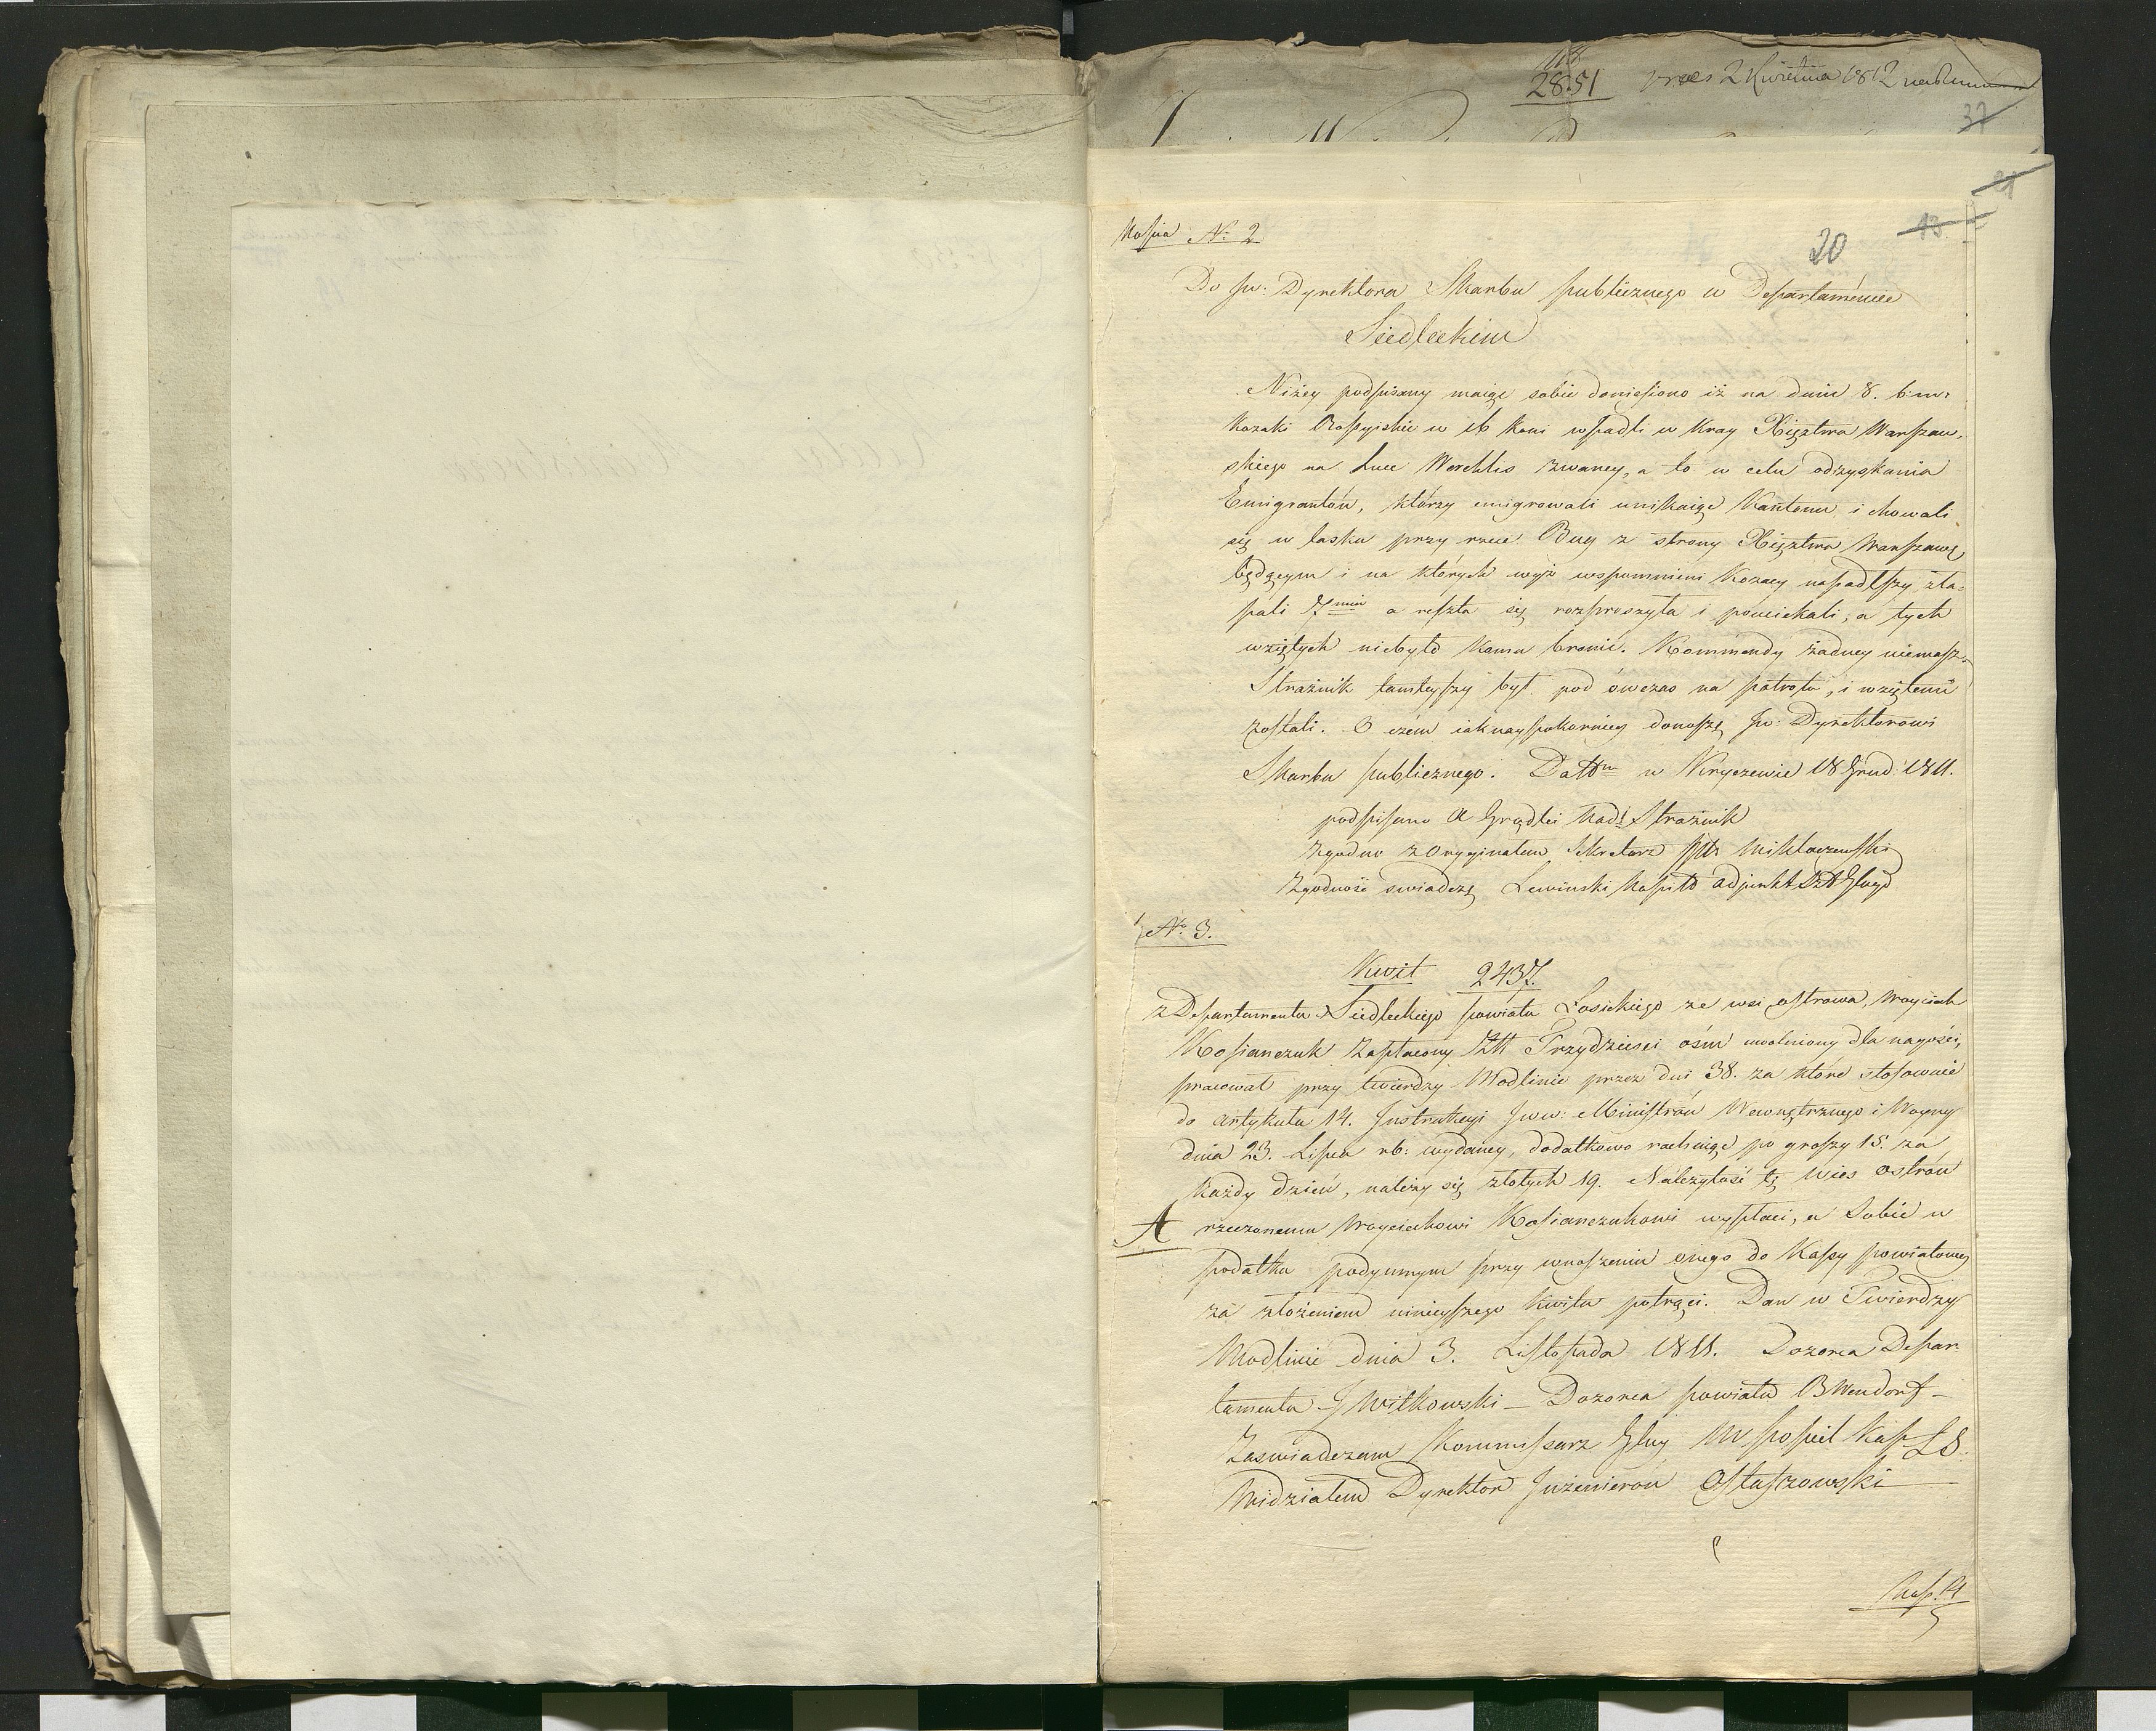 2851 praes 2 Kwietnia 1812
37
21
13
20
Kopia No 2
Do Jw: Dyrektora Skarbu publicznego w Departamencie
Siedleckim
Niżey podpisany maiąc sobie doniesiono iż na dniu 8. b:m:
Kozaki Rossyiskie w 16 koni wpadli w Kray Xięztwa Warszaw,
skiego na Luce Werchlis zwaney, a to w celu odzyskania
Emigrantów, którzy emigrowali unikaiąc Kantonu i chowali
się w lasku przy rzece Bug z strony Xięztwa Warszaws
będącym i na których wyż wspomnieni Kozacy napadłszy zła-
pali 7miu a reszta się rozproszyła i pouciekali, a tych
wziętych niebyło komu bronić. Kommendy żadney niemasz.
Strażnik tamteyszy był pod ówczas na patrolu, i wziętemi
zostali. O czém iaknaypokorniey donoszę Jw: Dyrektorowi
Skarbu publicznego. Dattm w Kiryczewie 18 Grud: 1811.
podpisano A Grądzki Nad: Strażnik
Zgodno z Oryginałem Sekretarz Miklaszewski
Zgodność swiadczę Lewinski Kapit: adjunkt
No 3.
Kwit 2437.
z Departamentu Siedleckiego powiatu Łosickiego ze wsi Ostrowa, Woyciech
Kosianczuk Zapłacony Złt Trzydzieści ośm uwolniony dla nagości,
pracował przy twierdzy Modlinie przez dni 38. za które stósownie
do artykułu 14. Instrukcyi Jww: Ministrów Wewnętrznego i Woyny
dnia 23. Lipca rb: wydaney, dodatkowo rachuiąc po groszy 15. za
każdy dzień, należy się złotych 19. Należytość tę Wieś Ostrów
A rzeczonemu Woyciechowi Kosianczukowi wypłaci, a Sobie w
podatku podymnym przy wnoszeniu onego do Kassy powiatowey
za złożeniem ninieyszego kwitu potrąci. Dan w Twierdzy
Modlinie dnia 3. Listopada 1811. Dozorca Depar-
tamentu J Witkowski – Dozorca powiatu B Wendorf –
Zaswiadczam Kommissarz Kap LS.
Widziałem Dyrektor Inżenierów Ostaszowski